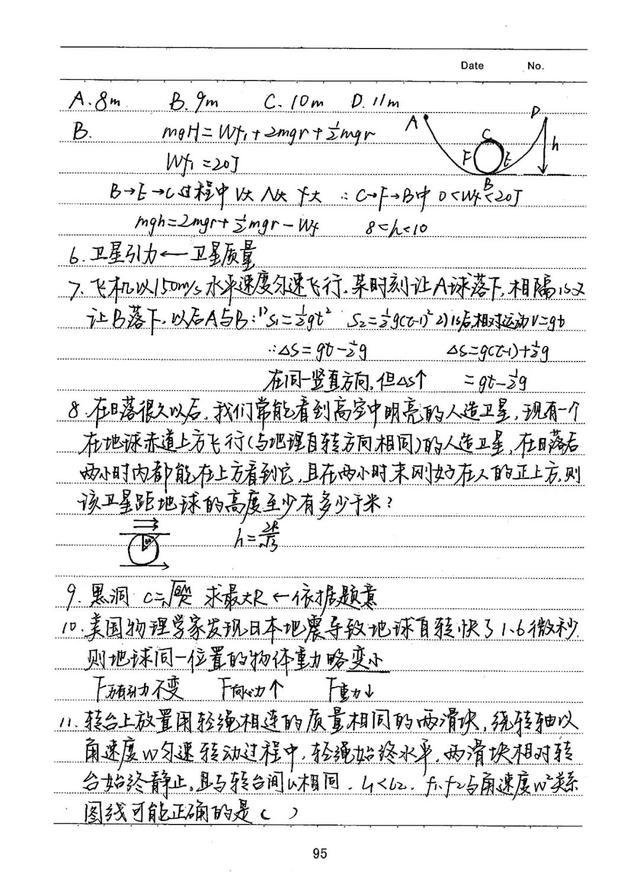 Date No.
A.8m B.9m C.10m D.11m
B. mgH=Wf1+2mgr+½mgr
A D C F E B h
Wf1=20J
B→E→C过程中 V大 N大 f大 ∴C→F→B中 0<Wf<20J
mgh=2mgr+½mgr-Wf 8<h<10
6.卫星引力←卫星质量
7.飞机以150m/s水平速度匀速飞行.某时刻让A球落下,相隔1s又
让B落下,以后A与B:1)S1=½gt² S2=½g(t-1)² 2)1s后相对运动V=gt
∴△S=gt-½g △S=g(t-1)+½g
在同一竖直方向,但△S↑ =gt-½g
8.在日落很久以后,我们常能看到高空中明亮的人造卫星,现有一个
在地球赤道上方飞行(与地理自转方向相同)的人造卫星,在日落后
两小时内都能在上方看到它,且在两小时末刚好在人的正上方,则
该卫星距地球的高度至少有多少千米?
9.黑洞 求最大R←依据题意
10.美国物理学家发现日本地震导致地球自转快了1.6微秒.
则地球同一位置的物体重力略变小
F万有引力不变 F向心力↑ F重力↓
11.转台上放置用轻绳相连的质量相同的两滑块,绕转轴以
角速度W匀速转动过程中,轻绳始终水平,两滑块相对转
台始终静止,且与转台间u相同.L1<L2.f1、f2与角速度W²关系
图线可能正确的是( )
95